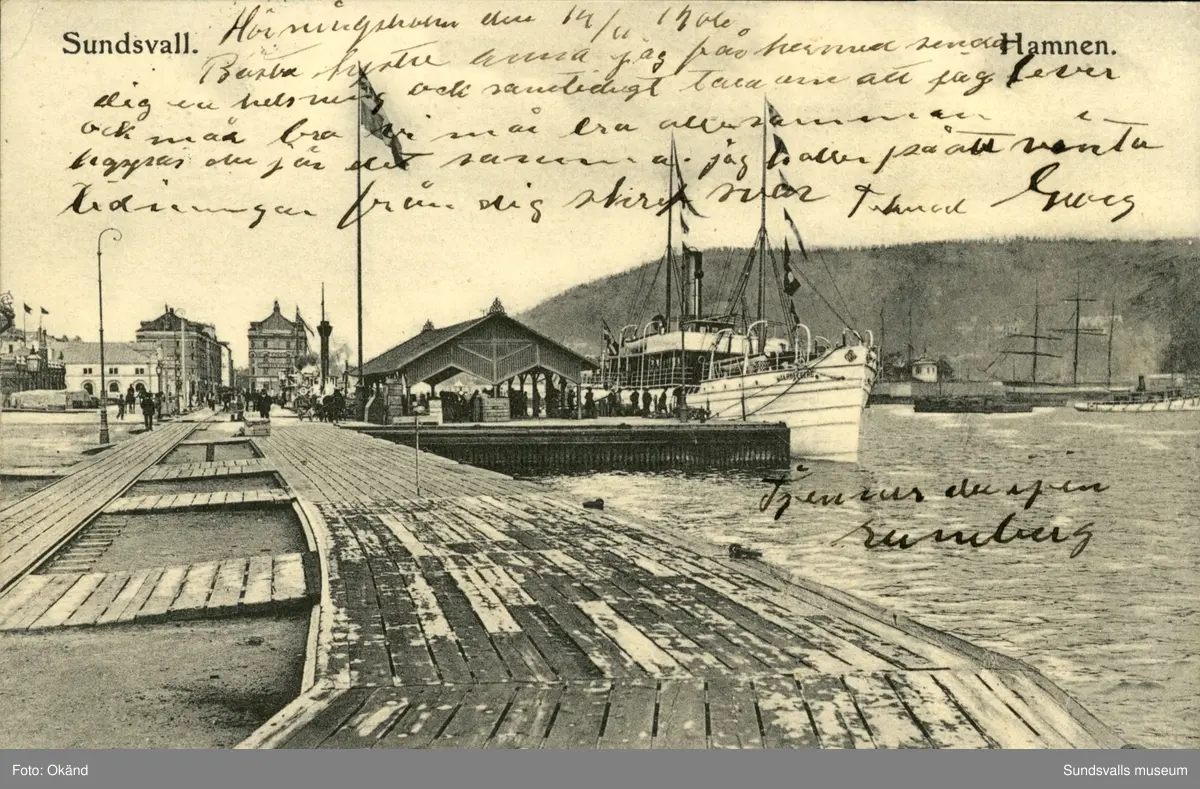 Sundsvall.
Hamnen.
Hörningsholm den 14/11 1906
Bästa syster anna jag får härmed sända
dig en helsning och samtidigt tala om att jag lefver
och mår bra vi må bra allesamman
hoppas du gör det samma. jag håller på att vänta
tidningar från dig skrif svar Georg
Tjenner du igen
Foto: Okänd
Sundsvalls museum